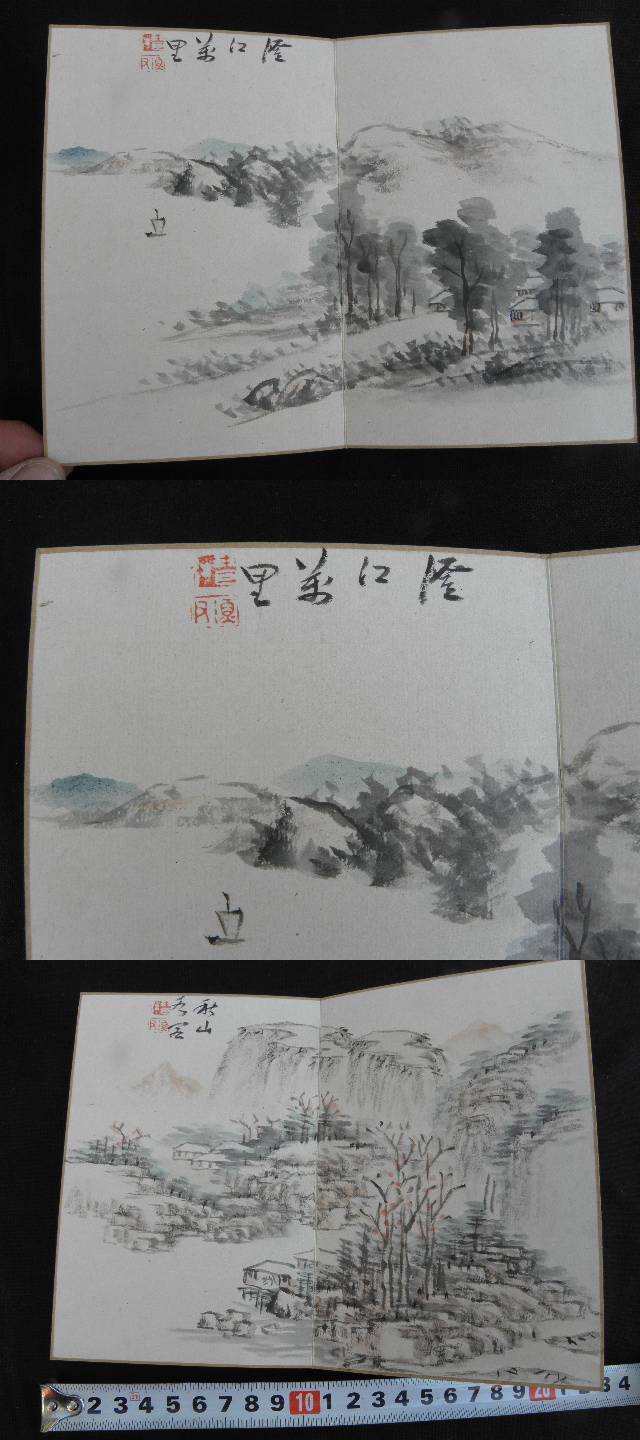 澄江萬里
澄江萬里
秋山
2 3 4 5 6 7 8 9 10 1 2 3 4 5 6 7 8 9 20 1 2 3 4